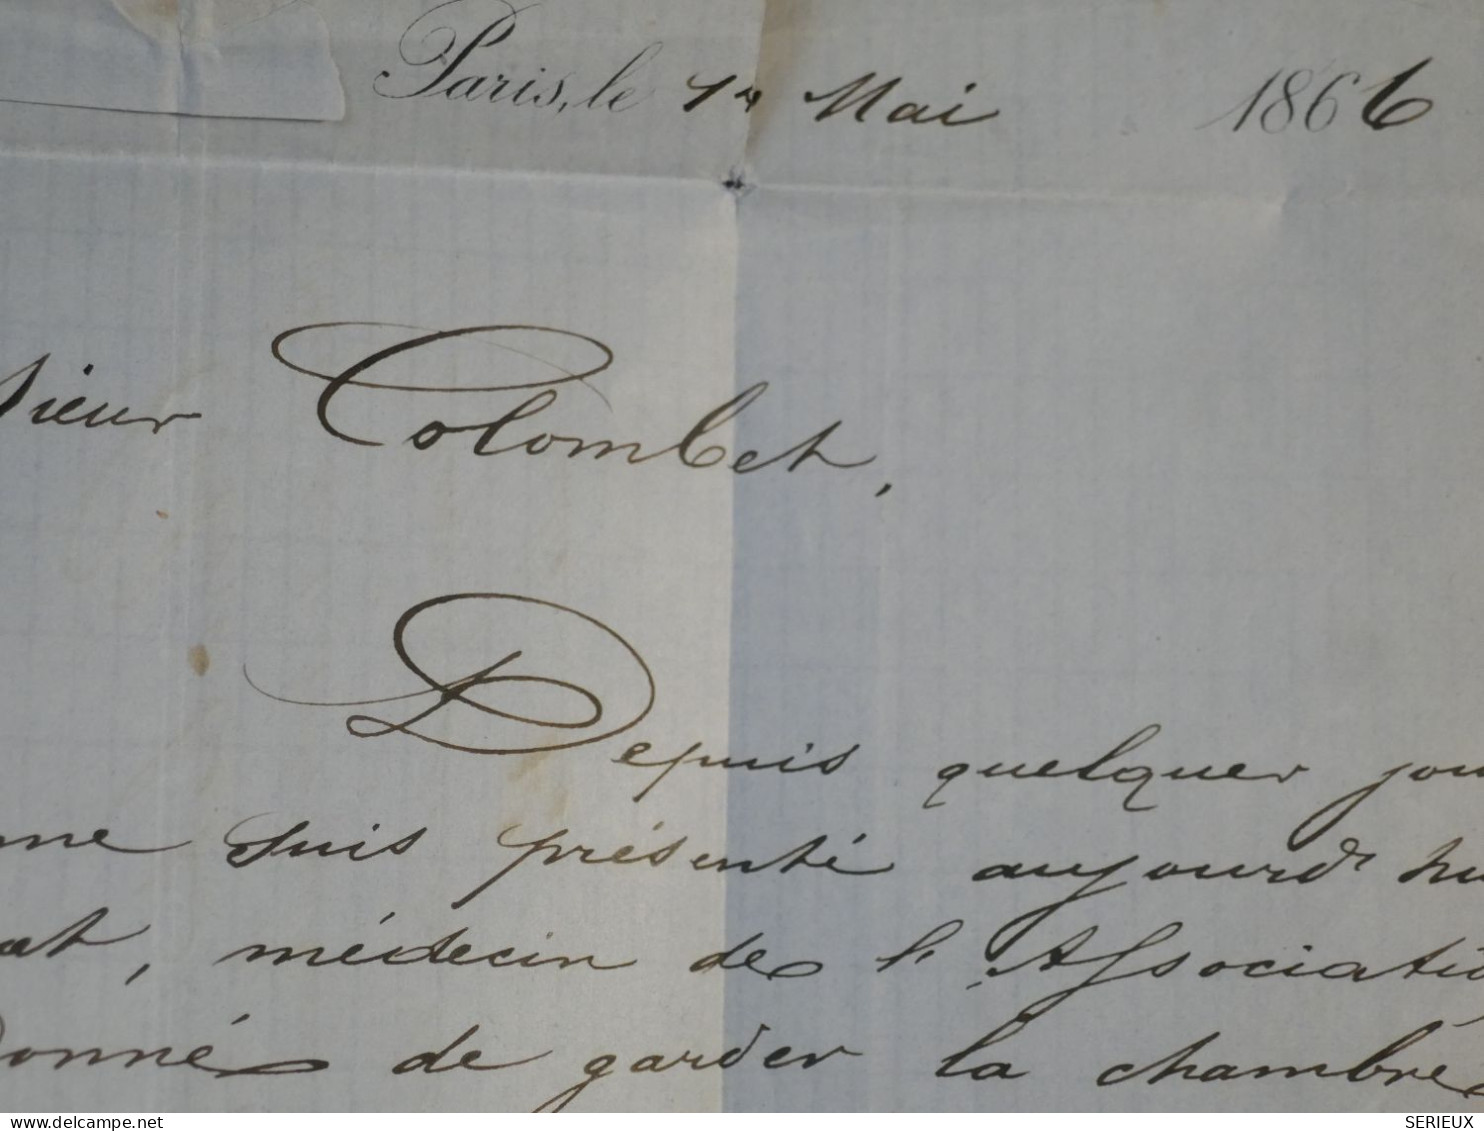 Paris, le 14 Mai 1866
sieur Colombet,
Depuis quelques jou
me suis présenté aujourd'hu
at, médecin de l'Associatio
donné de garder la chambre
SERIEUX